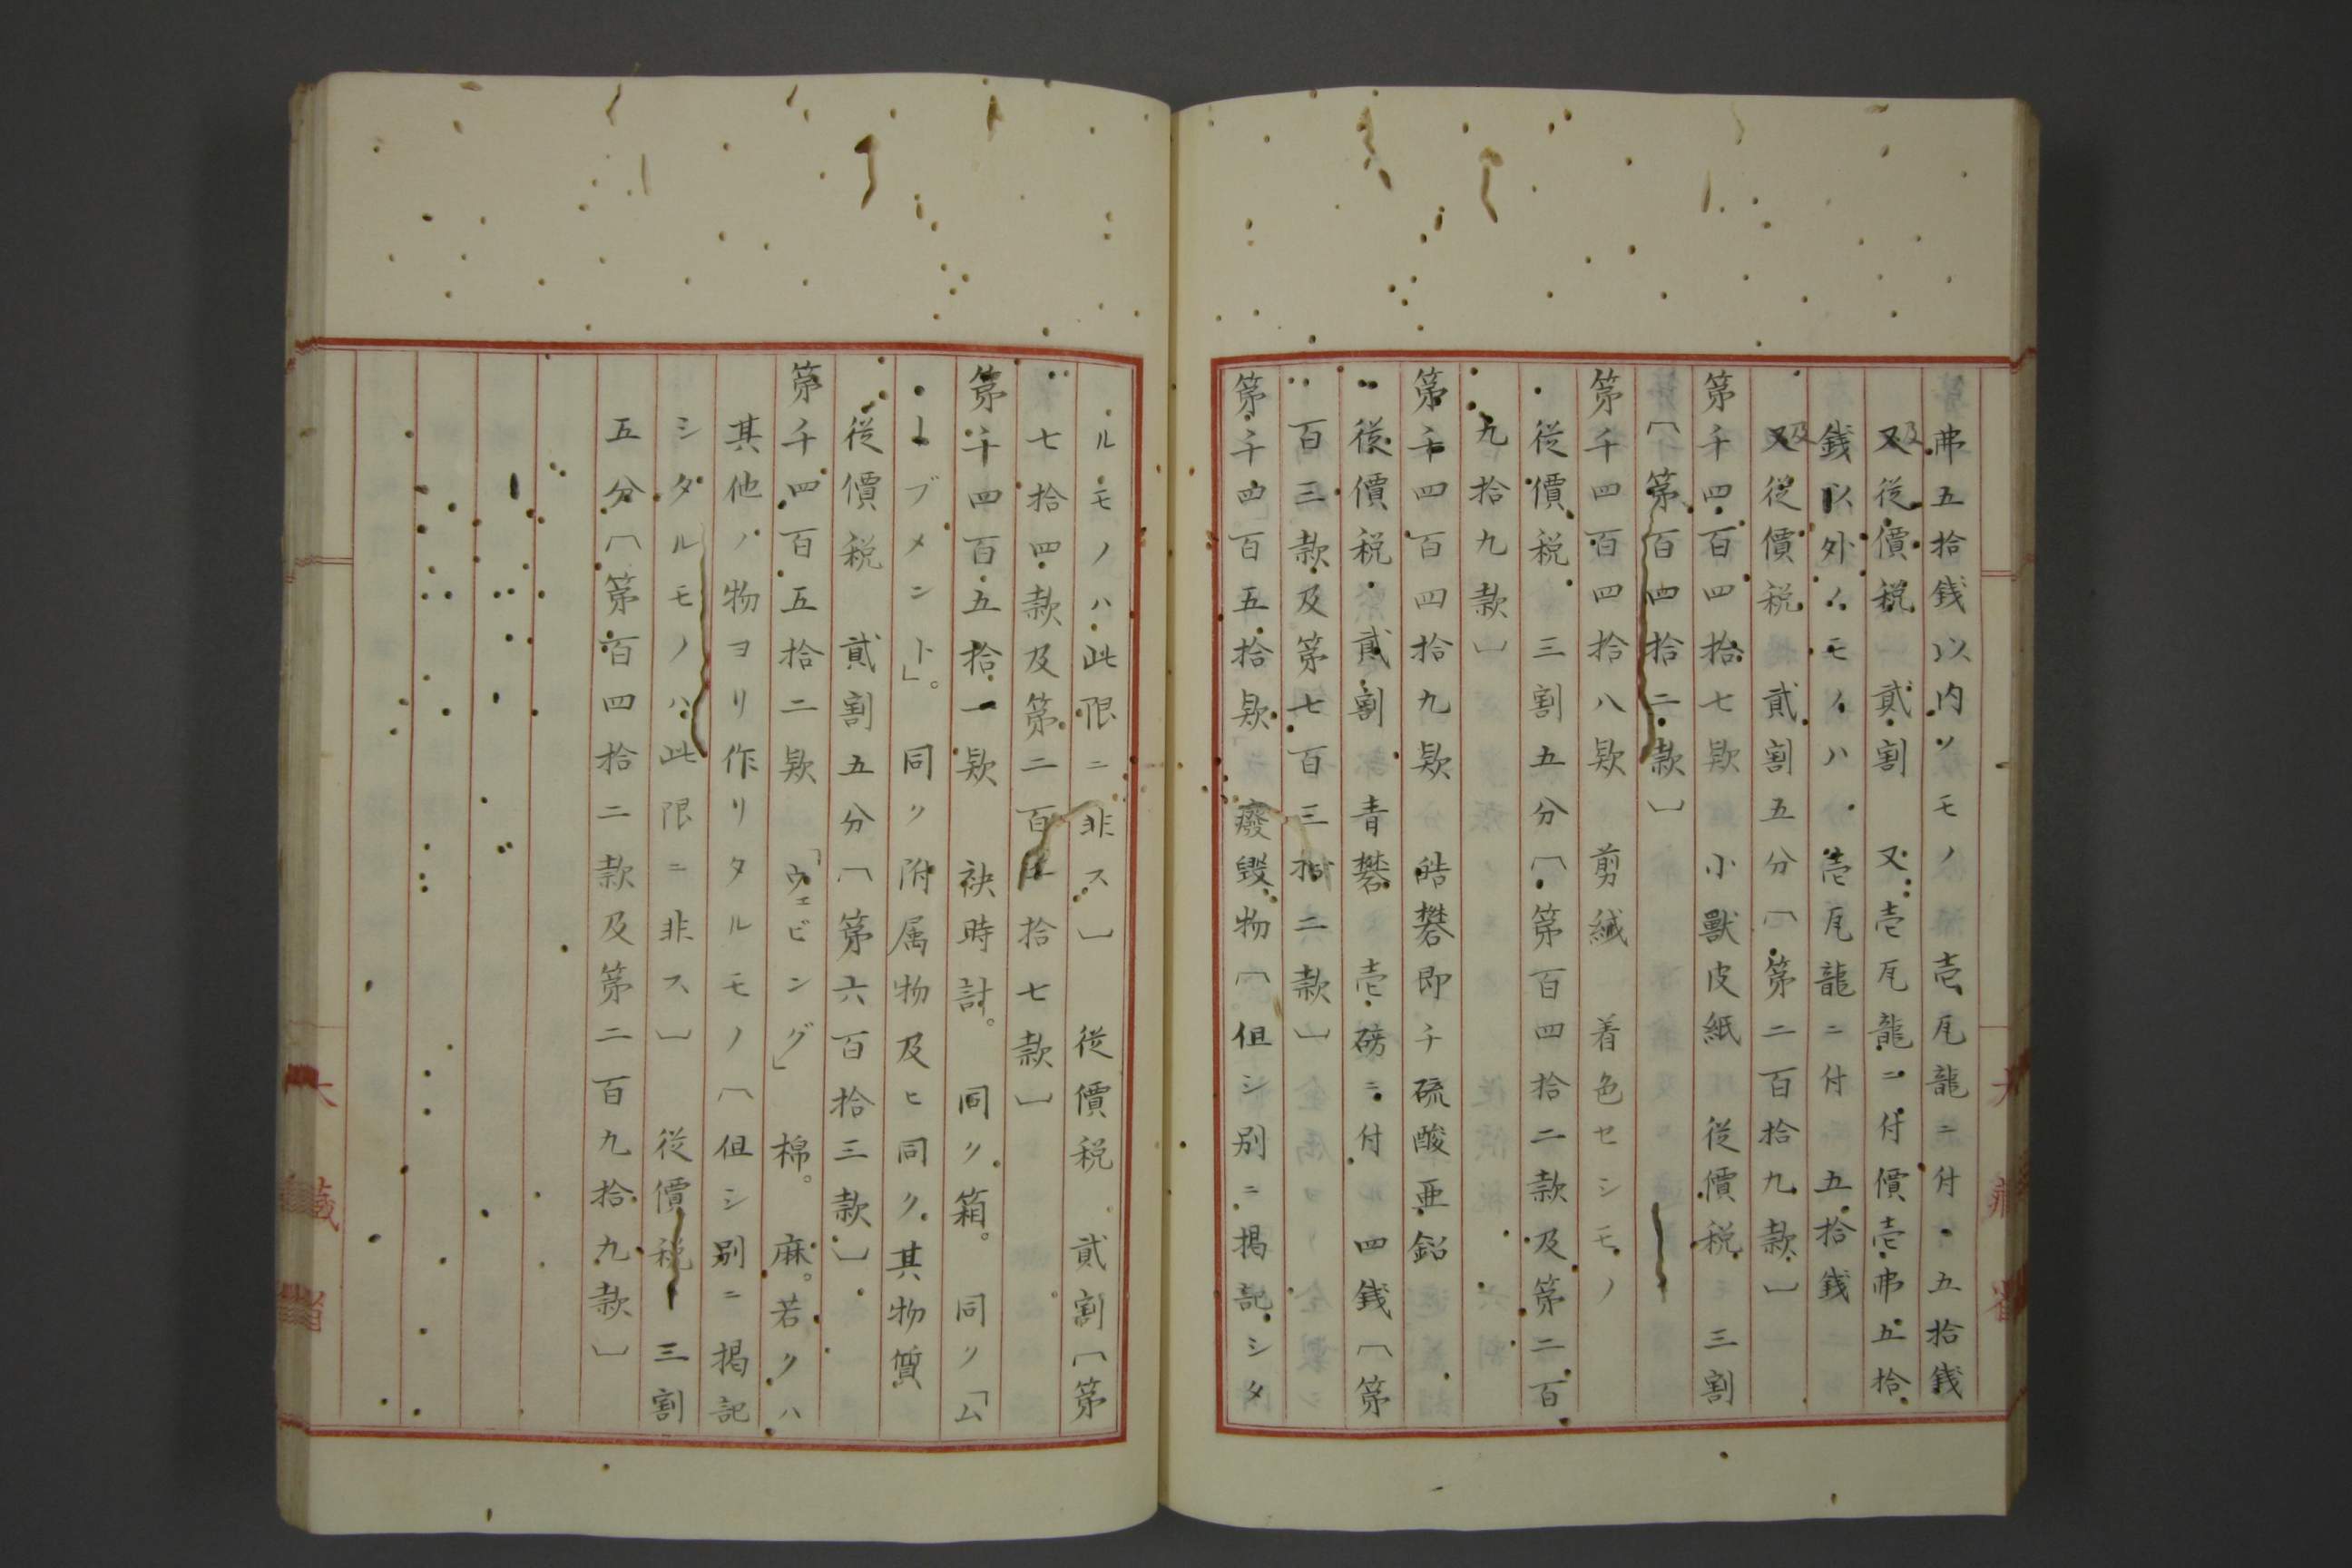 弗五拾銭以内ノモノ　壱瓦龍ニ付　五拾銭
及従價税　貳割　又壱瓦龍ニ付價壱弗五拾
銭以外ノモノハ　壱瓦龍ニ付　五拾銭
及従價税　貳割五分〔第二百拾九款〕
第千四百四拾七欵　小獸皮紙　従價税　三割
〔第百四拾二款〕
第千四百四拾八欵　剪絨　着色セシモノ
従價税　三割五分〔第百四拾二款及第二百
九拾九款〕
第千四百四拾九欵　皓礬即チ硫酸亜鉛
従價税　貳割　青礬　壱磅ニ付　四銭〔第
百三款及第七百三拾二款〕
第千四百五拾欵　廢毀物〔但シ別ニ掲記シタ
ルモノハ此限ニ非ス〕　従價税　貳割〔第
七拾四款及第二百　拾七款〕
第千四百五拾一欵　袂時計。同ク箱。同ク「ム
ーブメント」。同ク附属物及ヒ同ク其物質
従價税　貳割五分〔第六百拾三款〕
第千四百五拾二欵　「ウェビング」　棉。麻。若クハ
其他ノ物ヨリ作リタルモノ〔但シ別ニ掲記
シタルモノハ此限ニ非ス〕　従價税　三割
五分〔第百四拾二款及第二百九拾九款〕
大藏省